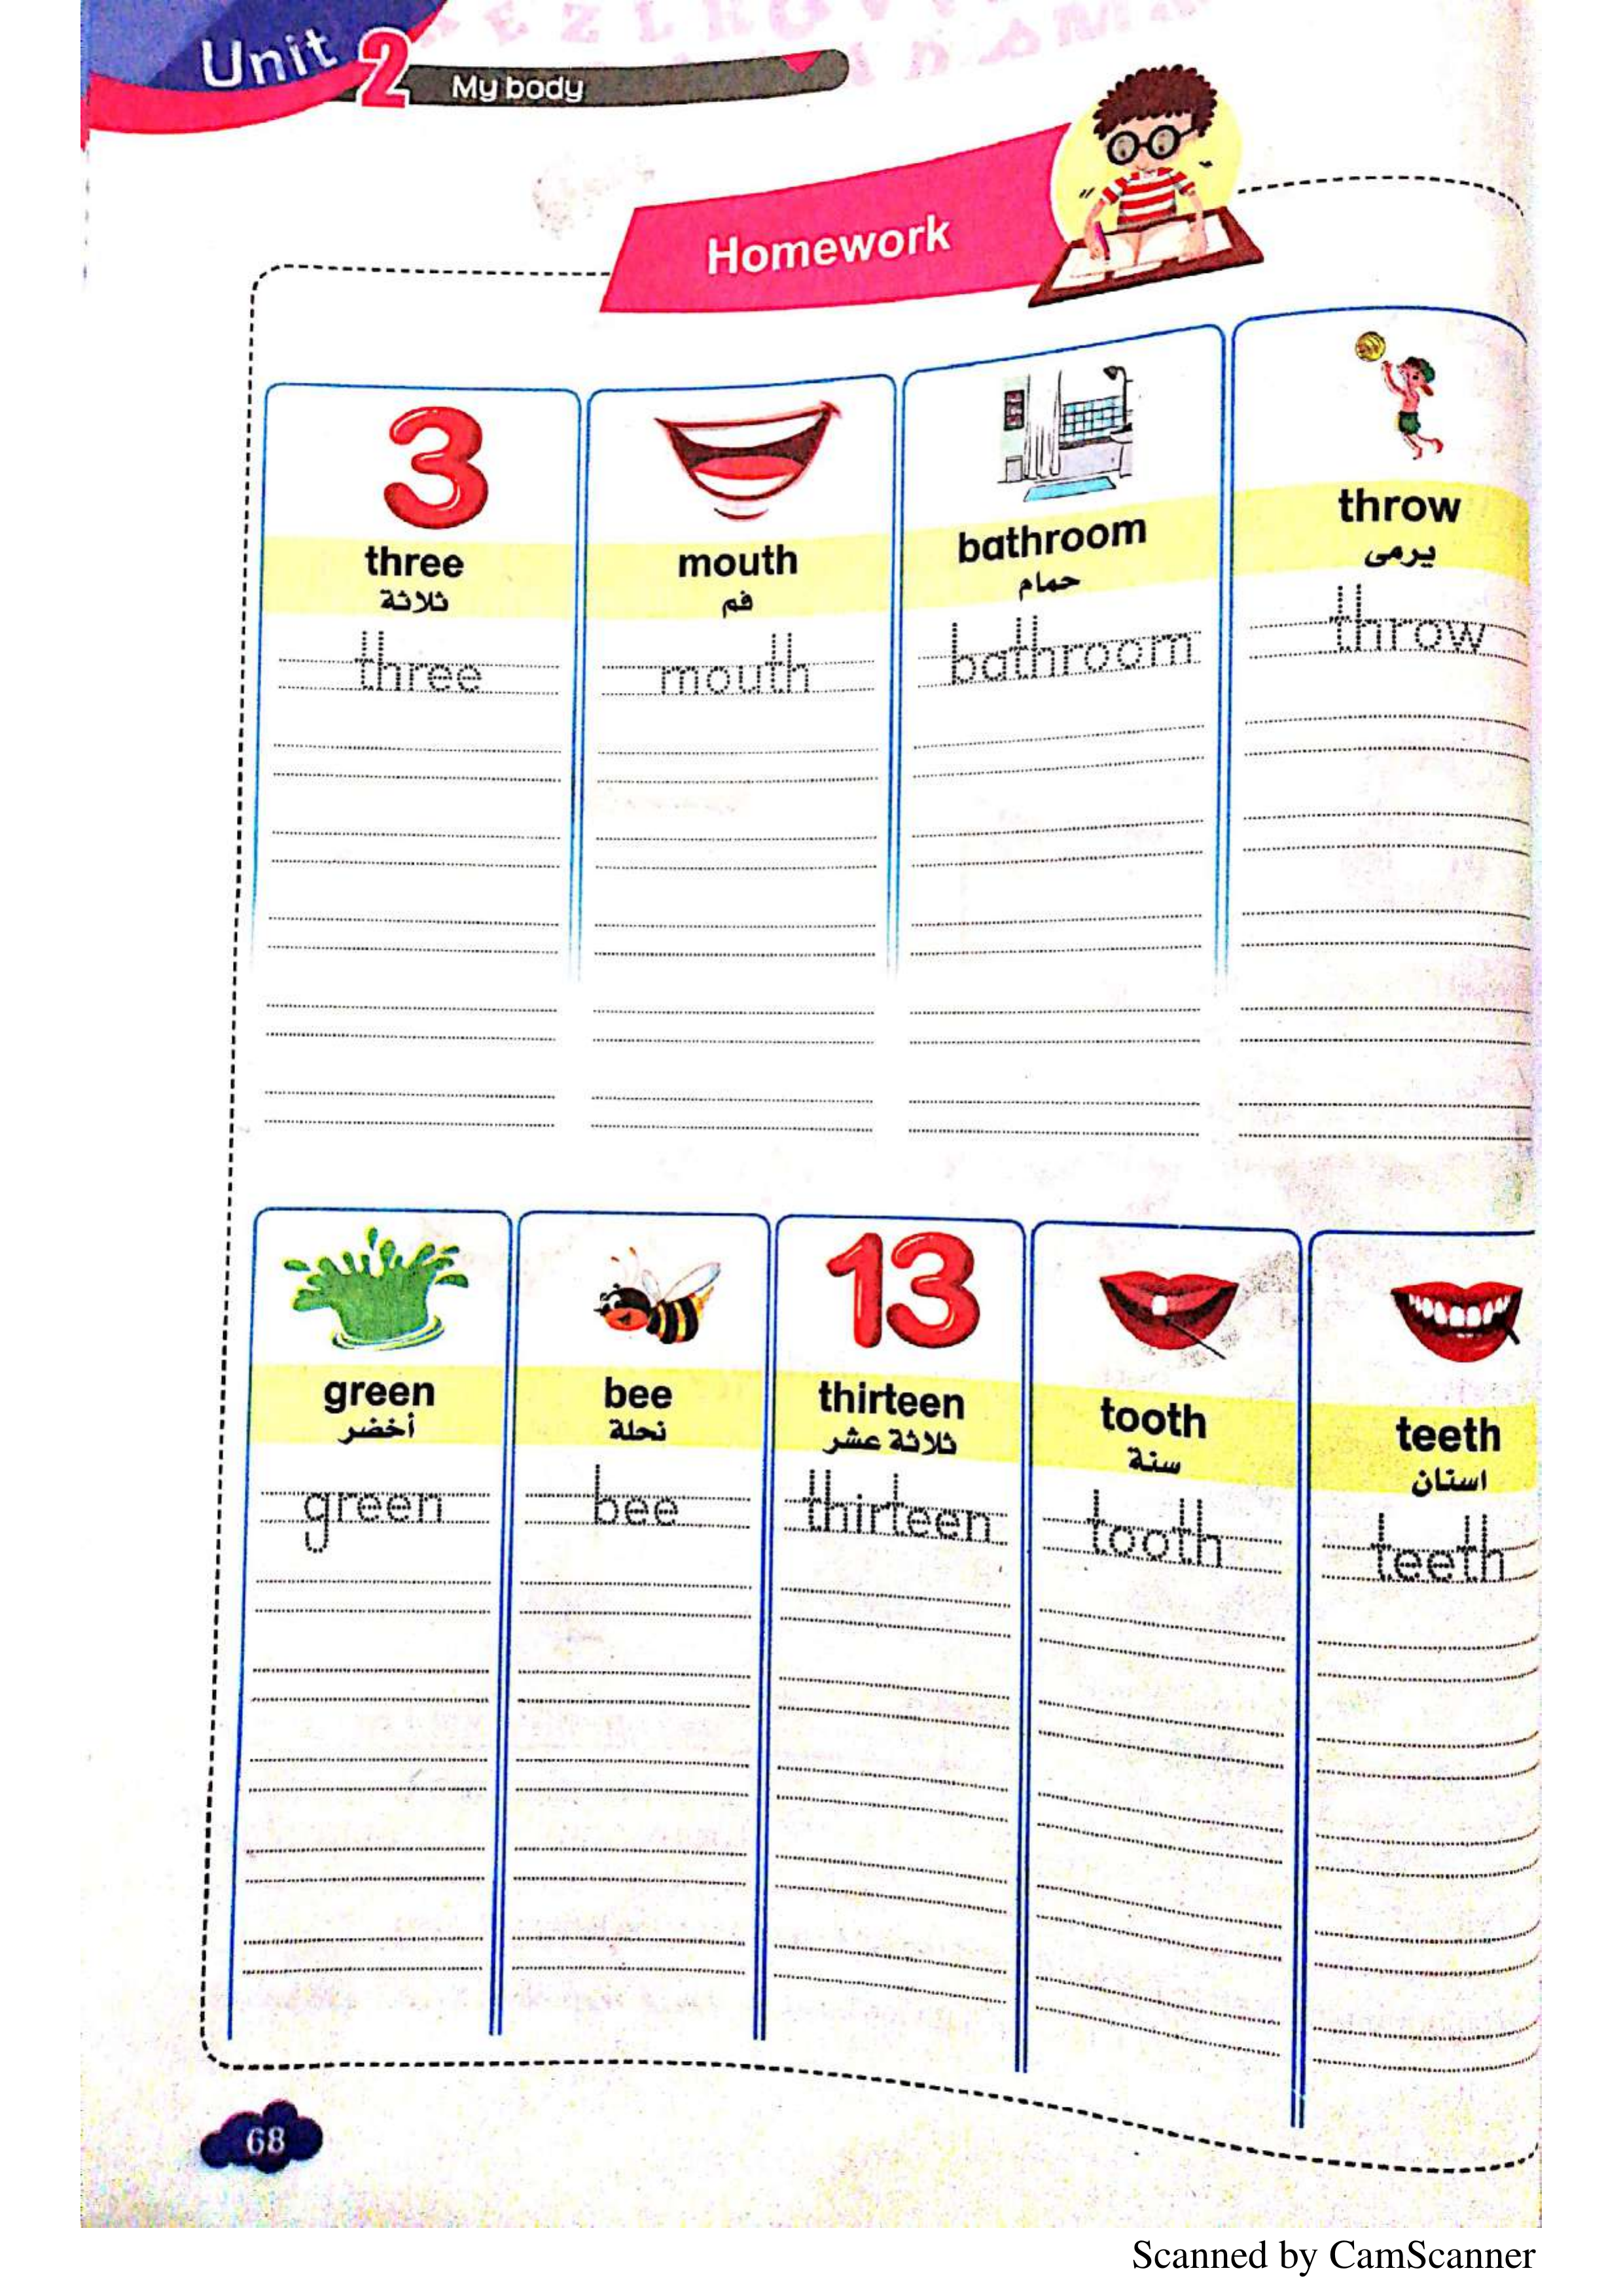 Unit 2 My body
Homework
3
three
ثلاثة
three
mouth
فم
mouth
bathroom
حمام
bathroom
throw
يرمى
throw
green
أخضر
green
bee
نحلة
bee
13
thirteen
ثلاثة عشر
thirteen
tooth
سنة
tooth
teeth
اسنان
teeth
68
Scanned by CamScanner